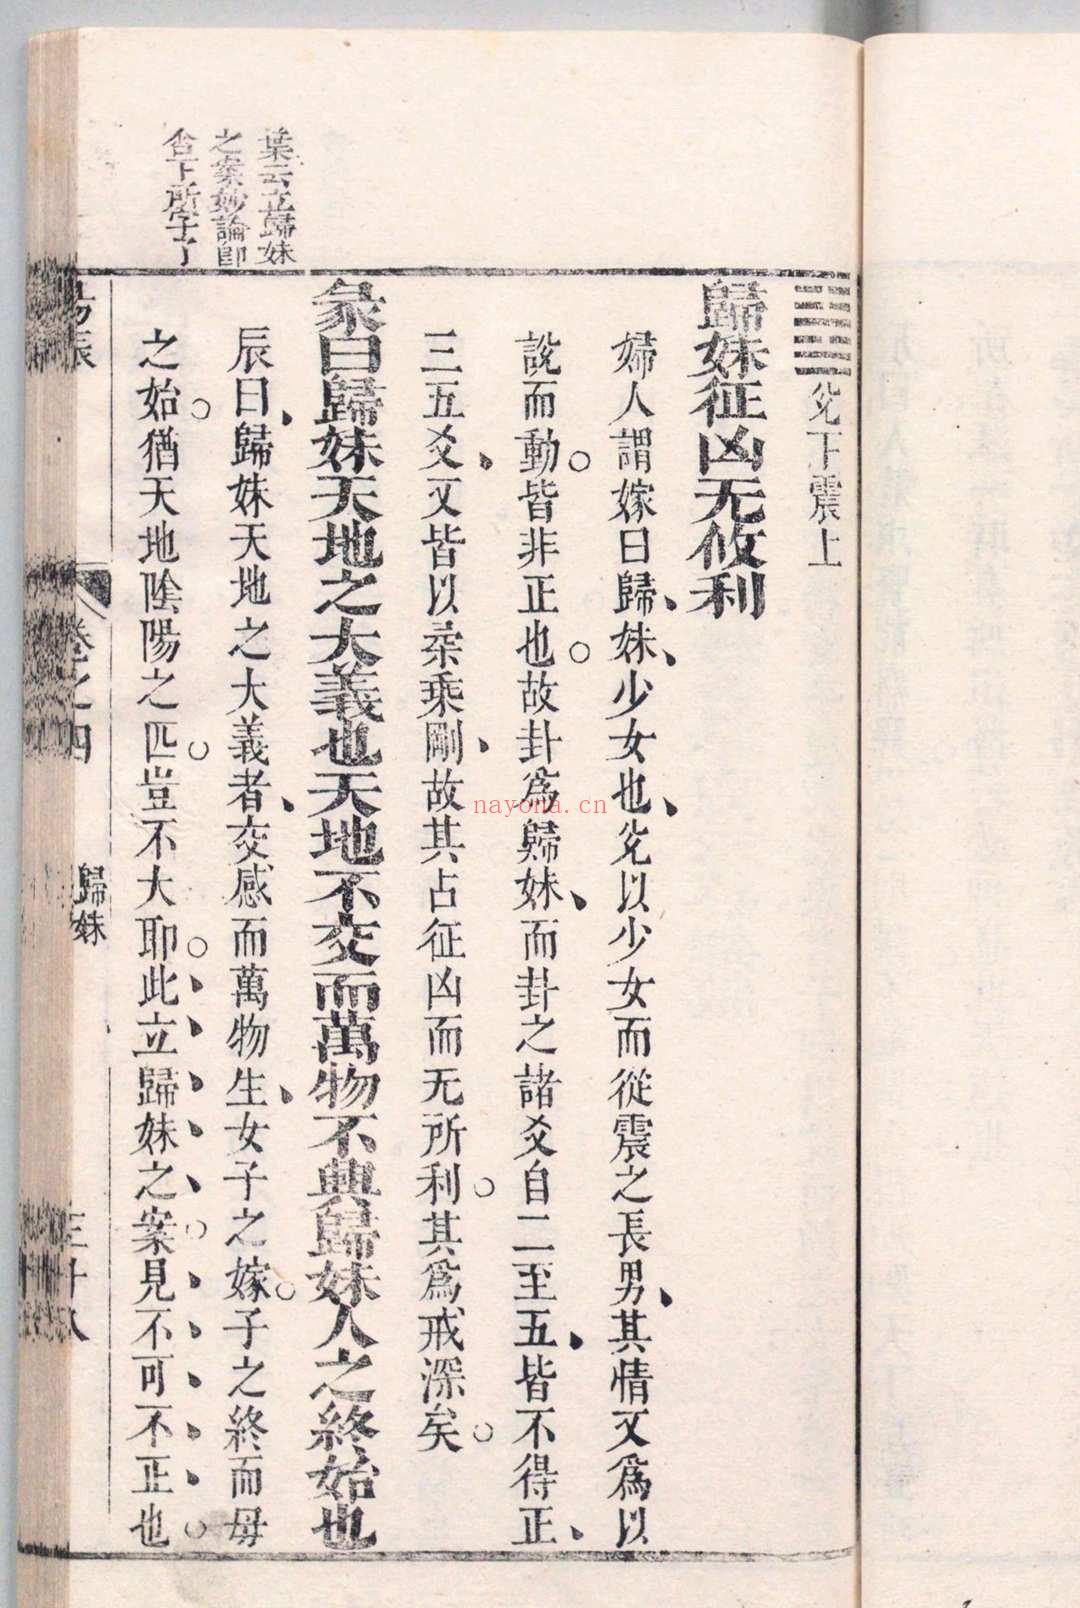 兌下震上
歸妹征凶无攸利
婦人謂嫁曰歸妹少女也兌以少女而從震之長男其情又爲以
說而動皆非正也故卦爲歸妹而卦之諸爻自二至五皆不得正
三五爻又皆以柔乘剛故其占征凶而无所利其爲戒深矣
彖曰歸妹天地之大義也天地不交而萬物不興歸妹人之終始也
辰曰歸妹天地之大義者交感而萬物生女子之嫁子之終而母
之始猶天地陰陽之匹豈不大耶此立歸妹之案見不可不正也
葉云立歸妹
之案妙論卽
含下所字了
卷之四
歸妹
三十八
nayona.cn